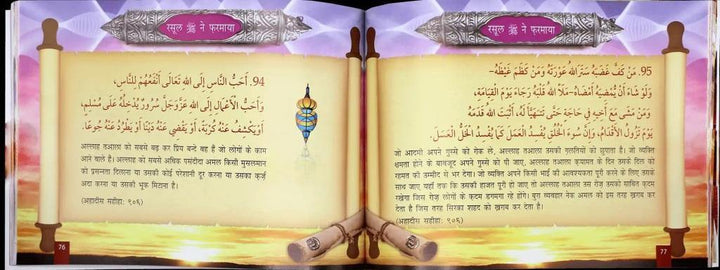 रसूल ﷺ ने फ़रमाया
94. أَحَبُّ النَّاسِ إِلَى اللهِ تَعَالَى أَنْفَعُهُمْ لِلنَّاسِ،
وَأَحَبُّ الْأَعْمَالِ إِلَى اللهِ عَزَّوَجَلَّ سُرُورٌ يُدْخِلُهُ عَلَى مُسْلِمٍ،
أَوْ يَكْشِفُ عَنْهُ كُرْبَةً، أَوْ يَقْضِي عَنْهُ دَيْنًا أَوْ يَطْرُدُ عَنْهُ جُوعًا.
अल्लाह तआला को सबसे बढ़ कर प्रिय बन्दे वह हैं जो लोगों के काम
आने वाले हैं। अल्लाह को सबसे अधिक पसंदीदा अमल किसी मुसलमान
को प्रसन्नता दिलाना या उसकी कोई परेशानी दूर करना या उसका कर्ज़
अदा करना या उसकी भूक मिटाना है।
(अहादीस सहीहा: ९०६)
76
रसूल ﷺ ने फ़रमाया
95. مَنْ كَفَّ غَضَبَهُ سَتَرَ اللهُ عَوْرَتَهُ وَمَنْ كَظَمَ غَيْظَهُ-
وَلَوْ شَاءَ أَنْ يُمْضِيَهُ أَمْضَاهُ-مَلَأَ اللهُ قَلْبَهُ رَجَاءً يَوْمَ الْقِيَامَةِ،
وَمَنْ مَشَى مَعَ أَخِيهِ فِي حَاجَةٍ حَتَّى تَتَهَيَّأَ لَهُ، أَثْبَتَ اللهُ قَدَمَهُ
يَوْمَ تَزُولُ الْأَقْدَامُ، وَإِنَّ سُوءَ الْخُلُقِ يُفْسِدُ الْعَمَلَ كَمَا يُفْسِدُ الْخَلُّ الْعَسَلَ.
जो आदमी अपने गुस्से को रोक ले, अल्लाह तआला उसकी ग़लतियों को छुपाता है। जो व्यक्ति
क्षमता होने के बावजूद अपने गुस्से को पी जाए, अल्लाह तआला क़यामत के दिन उसकी दिल को
रहमत की उम्मीद से भर देगा। जो व्यक्ति अपने किसी भाई की आवश्यकता पूरी करने के लिए उसके
साथ जाए यहाँ तक कि उसकी हाजत पूरी हो जाए तो अल्लाह तआला उस रोज़ उसको साबित क़दम
रखेगा जिस रोज़ लोगों के क़दम डगमगा रहे होंगे। बुरा व्यवहार नेक अमल को इस तरह ख़राब कर
देता है जिस तरह सिरका शहद को ख़राब कर देता है।
(अहादीस सहीहा: ९०६)
77